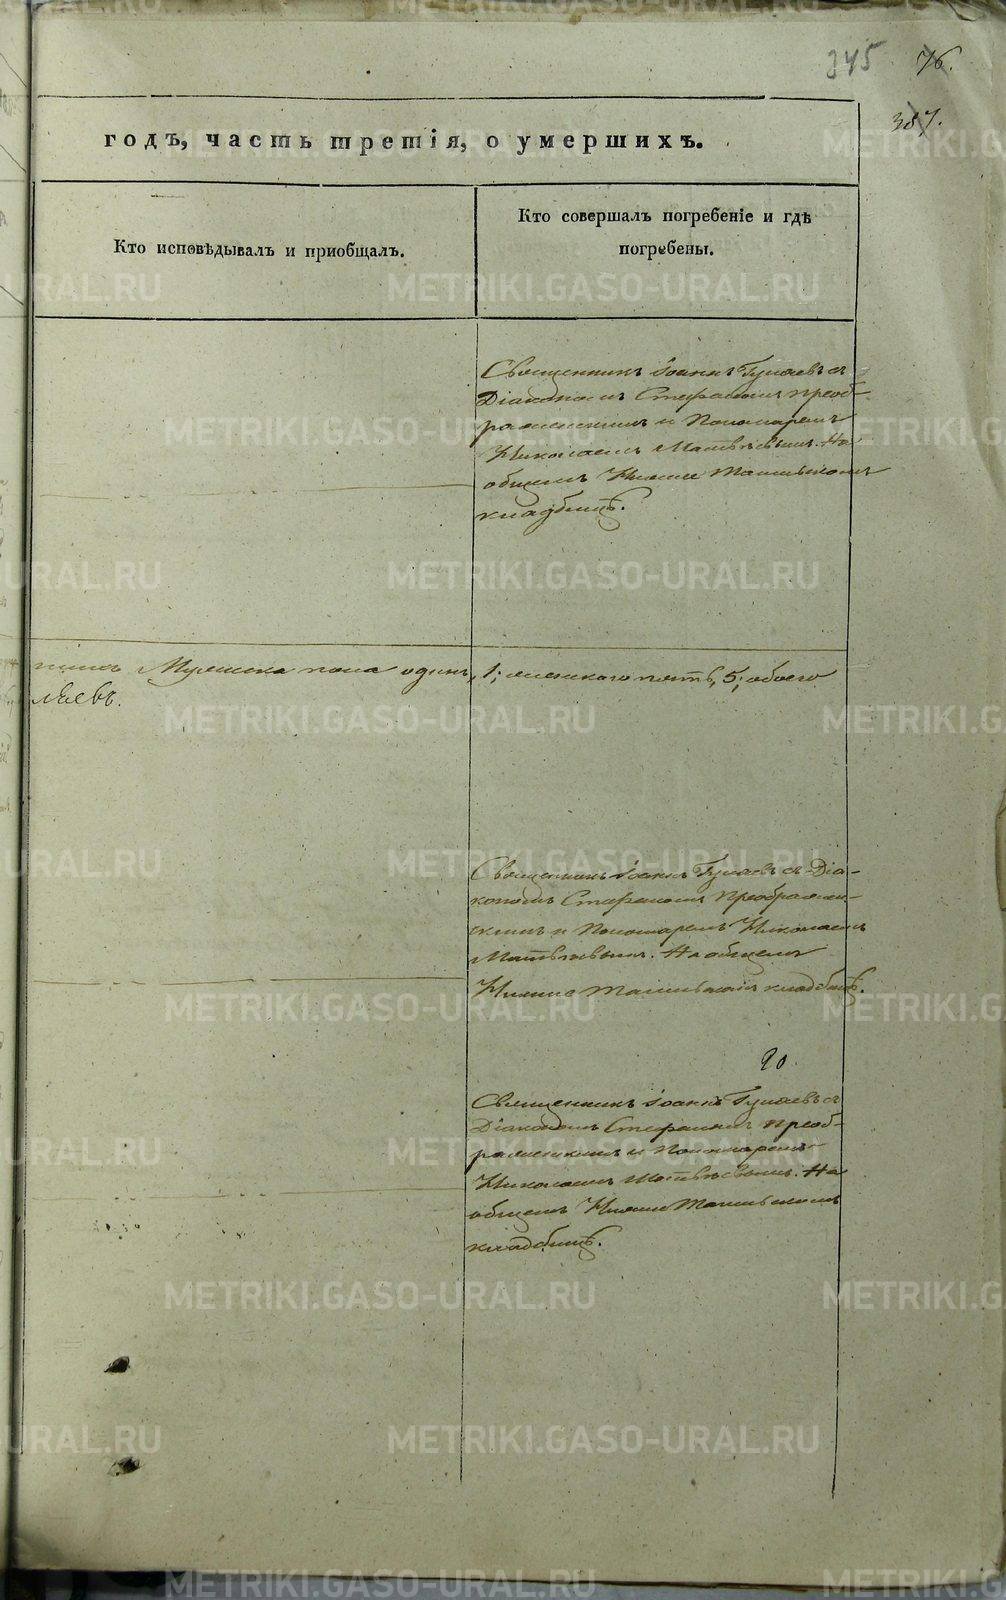 345 76.
387.
годъ, часть третія, о умершихъ.
Кто исповѣдывалъ и приобщалъ.
Кто совершалъ погребеніе и гдѣ
погребены.
Священникъ Іоаннъ съ
Діакономъ Стефаномъ Преоб-
раженскимъ и Пономаремъ
Николаемъ Матвѣевымъ. На
общемъ Нижне Тагильскомъ
кладбищѣ.
Мужеска пола одинъ, 1; женскаго пять, 5; обоего
Священникъ Іоаннъ съ Діа-
кономъ Стефаномъ Преображен-
скимъ и Пономаремъ Николаемъ
Матвѣевымъ. На общемъ
Нижне Тагильскомъ кладбищѣ.
20.
Священникъ Іоаннъ съ
Діакономъ Стефаномъ Преоб-
раженскимъ и Пономаремъ
Николаемъ Матвѣевымъ. На
общемъ Нижне Тагильскомъ
кладбищѣ.
METRIKI.GASO-URAL.RU